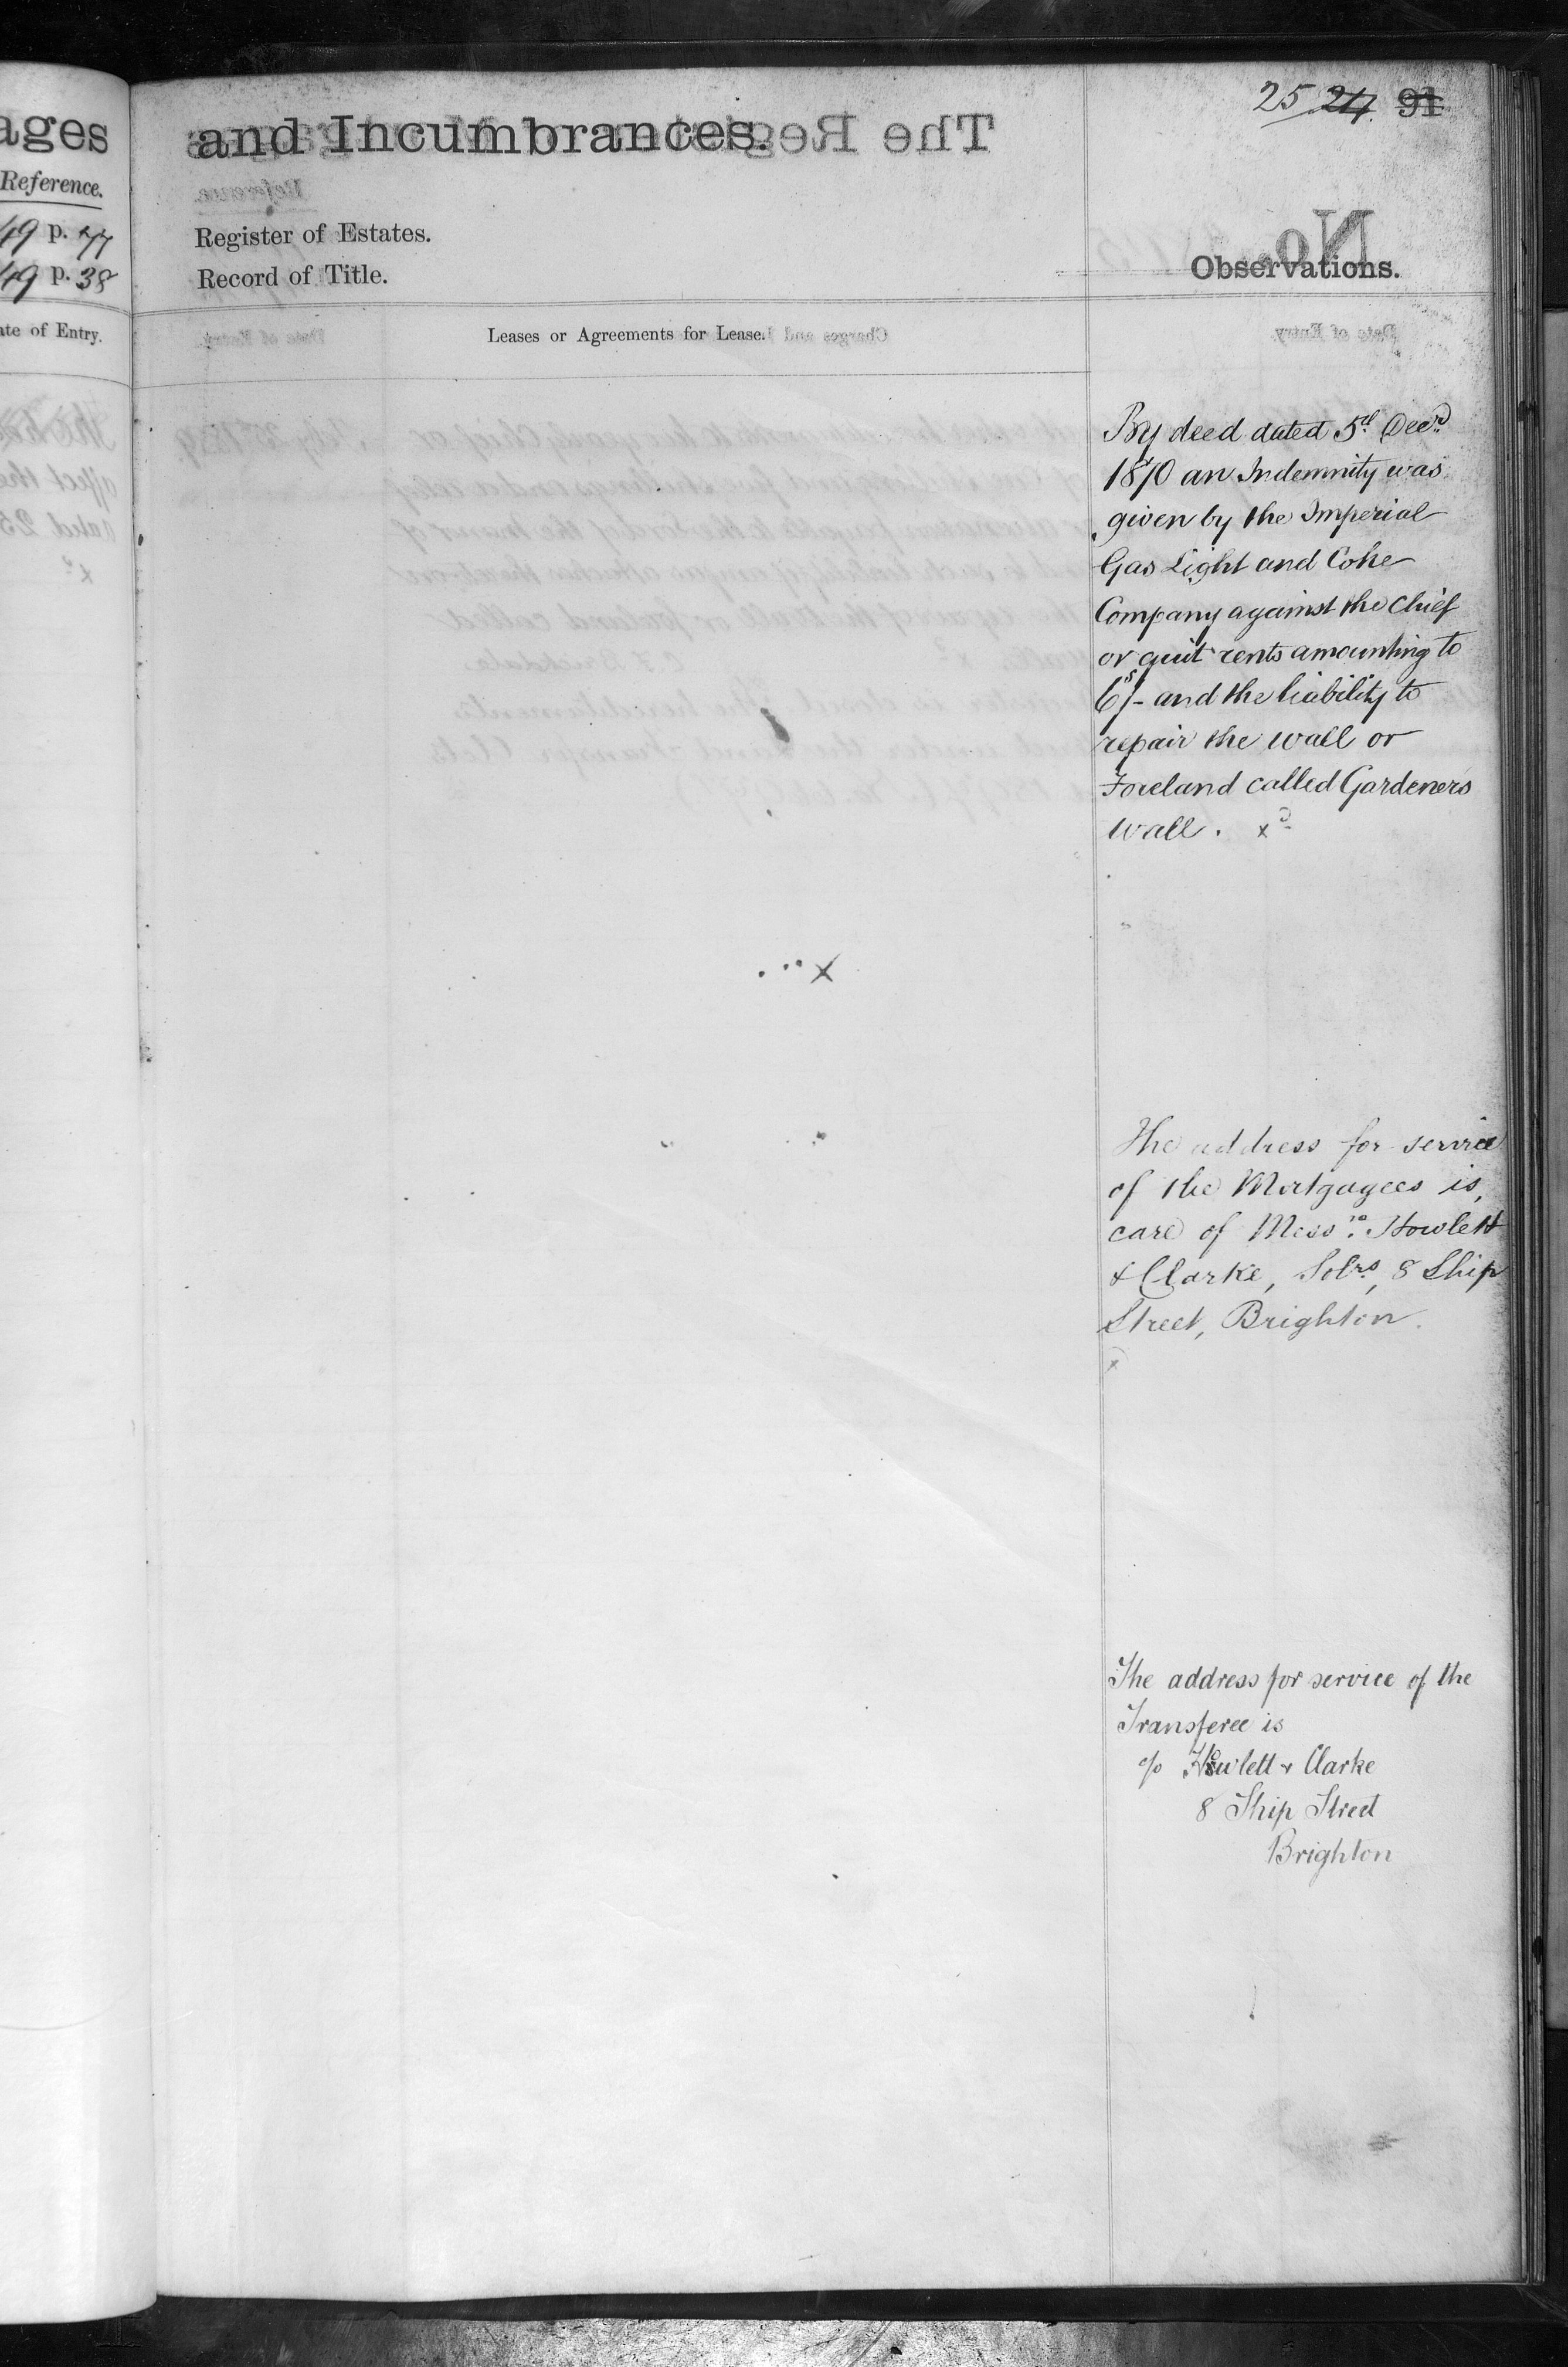 ages
Reference.
49 p. 77
49 p. 38
ate of Entry.
25 24 91
and Incumbrances.
Register of Estates.
Record of Title.
Observations.
Leases or Agreements for Lease.
By deed dated 5th Decr
1870 an Indemnity was
given by the Imperial
Gas Light and Coke
Company against the Chief
or quit rents amounting to
6s/- and the liability to
repair the wall or
Foreland called Gardeners
wall. x
x
The address for service
of the Mortgagees is,
care of Messrs. Howlett
& Clarke, Solrs, 8 Ship
Street, Brighton.
x
The address for service of the
Transferee is
c/o Howlett & Clarke
8 Ship Street
Brighton